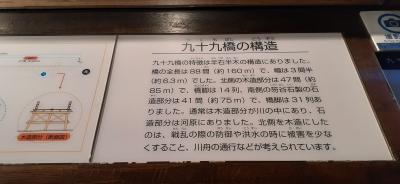 九十九橋の構造
九十九橋の特徴は半石半木の構造にありました。
橋の全長は88間(約160m)で、幅は3間半
(約6.3m)でした。北側の木造部分は47間(約
85m)で、橋脚は14列、南側の笏谷石製の石
造部分は41間(約75m)で、橋脚は31列あ
りました。通常は木造部分が川の中にあり、石
造部分は河原にありました。北側を木造にした
のは、戦乱の際の防御や洪水の時に被害を少な
くすること、川舟の通行などが考えられています。
木造部分(断面図)